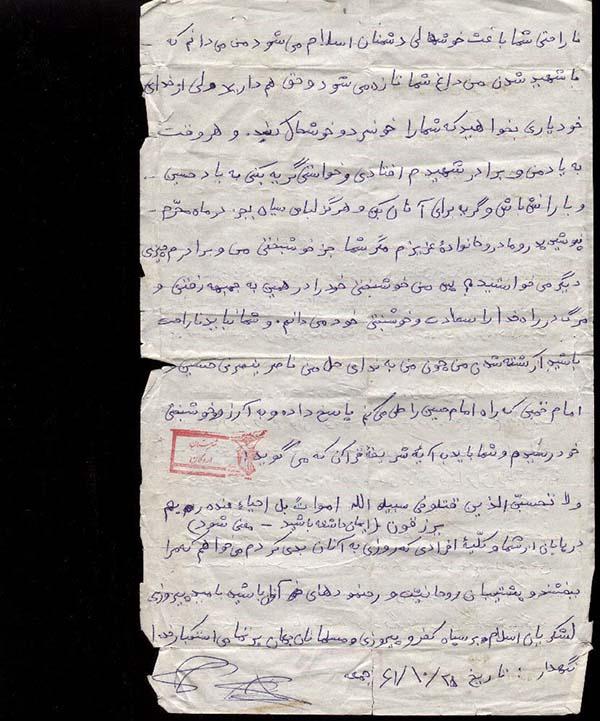 ناراحتی شما باعث خوشحالی دشمنان اسلام می شود من می دانم که
با شهید شدن من داغ شما تازه می شود و حق هم دارید ولی از خدای
خود یاری بخواهید که شما را خونسرد و خوشحال کنید. و هر وقت
به یاد من و برادر شهیدم افتادی و خواستی گریه کنی به یاد حسین
و یارانش باش و گریه برای آنان کن و هرگز لباس سیاه بجز در ماه محرم
نپوشید پدر و مادر و خانواده عزیزم مگر شما جز خوشبختی من و برادرم چیزی
دیگر می خواستید پس من خوشبختی خود را در همین به جبهه رفتن و
مرگ در راه خدا را سعادت و خوشبختی خود می دانم. و شما نباید ناراحت
باشید از کشته شدن من چون من به ندای هل من ناصر ینصرنی حسین
امام خمینی که راه امام حسین را طی می کند پاسخ داده و به آرزو خوشبختی
خود رسیدم و شما باید به آیه شریفه قرآن که می گوید:
ولا تحسبن الذین قتلو فی سبیل الله امواتا بل احیاء عنده ربهم
یرزقون (ایمان داشته باشید
در پایان از شما و کلیه افرادی که روزی به آنان بدی کردم می خواهم که مرا
ببخشند و پشتیبان روحانیت و رهنمودهای باشید بامید پیروزی
لشگریان اسلام بر سپاه کفر و پیروزی مسلمانان جهان بر تمامی استکبار خدا
نگهدار : تاریخ ۶۱/۱۰/۲۵ جمعه